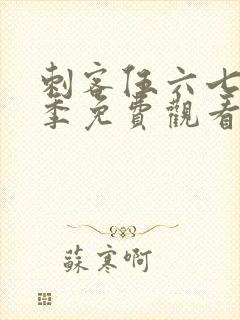 刺客伍六七
季免費觀看
蘇寒啊